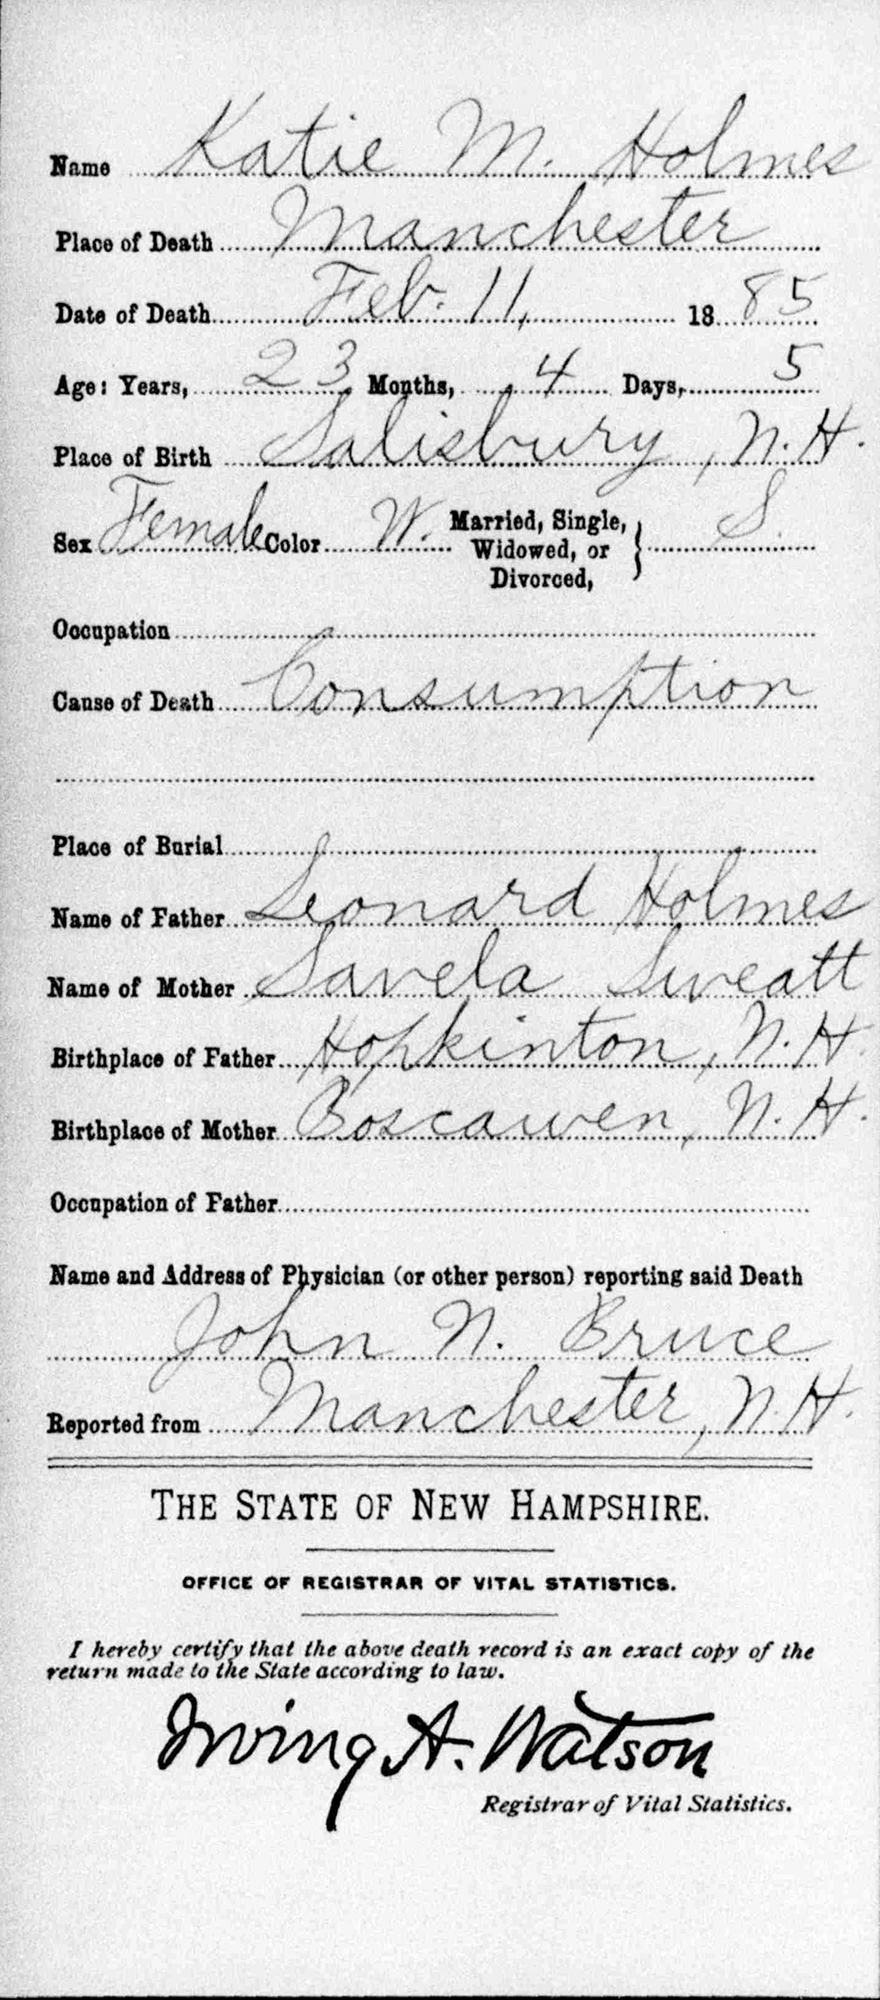 Name Katie M. Holmes
Place of Death Manchester
Date of Death Feb. 11, 1885
Age: Years, 23 Months, 4 Days, 5
Place of Birth Salisbury, N.H.
Sex Female Color W. Married, Single, Widowed, or Divorced, } S.
Occupation
Cause of Death Consumption
Place of Burial
Name of Father Leonard Holmes
Name of Mother Savela Sweatt
Birthplace of Father Hopkinton, N.H.
Birthplace of Mother Boscawen, N.H.
Occupation of Father
Name and Address of Physician (or other person) reporting said Death
John N. Bruce
Reported from Manchester, N.H.
THE STATE OF NEW HAMPSHIRE.
OFFICE OF REGISTRAR OF VITAL STATISTICS.
I hereby certify that the above death record is an exact copy of the
return made to the State according to law.
Irving A. Watson
Registrar of Vital Statistics.